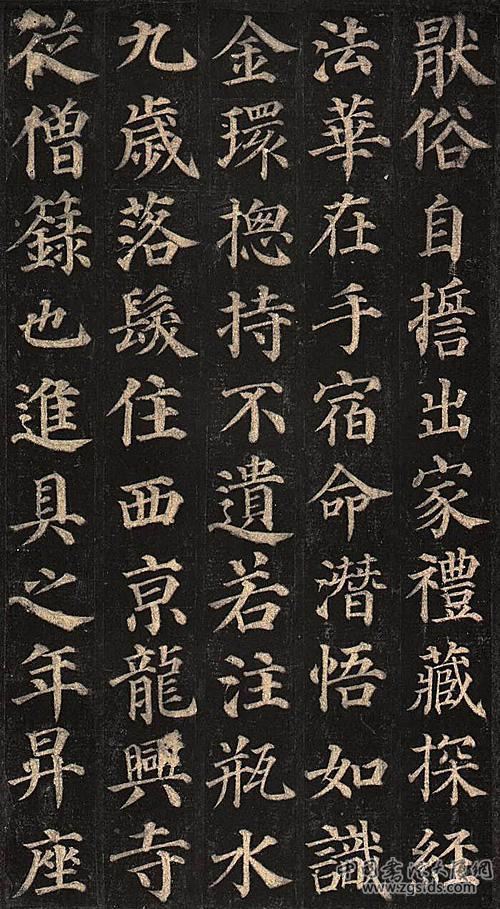 猒俗自誓出家禮藏探經
法華在手宿命潛悟如識
金環揔持不遺若注瓶水
九歲落髮住西京龍興寺
從僧籙也進具之年昇座
中国书法大成网
www.zgsids.com